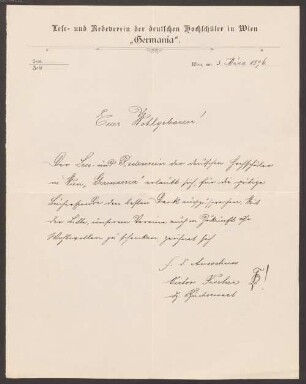 Lese- und Redeverein der deutschen Hochschüler in Wien
„Germania“.
Wien, am 3. März 1896
Euer Wohlgeboren!
Der Lese- und Redeverein der deutschen Hochschüler
in Wien „Germania“ erlaubt sich, für die gütige
Bücherspende den besten Dank auszusprechen. Mit
der Bitte, unserem Vereine auch in Zukunft Ihr
Wohlwollen zu schenken zeichnet sich
f. d. Ausschuss
Victor Fischer